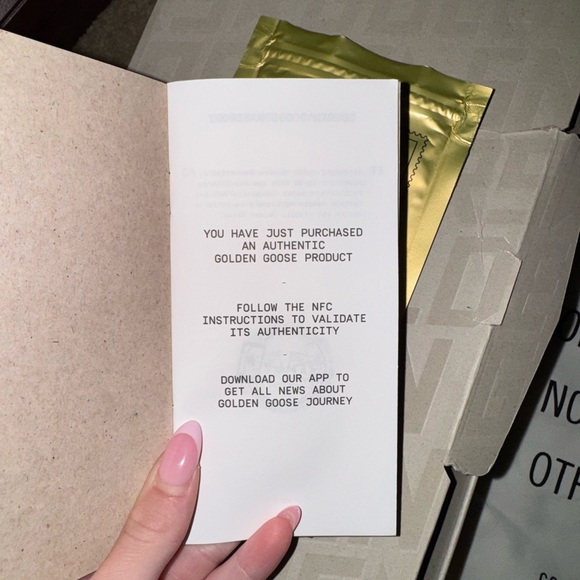 YOU HAVE JUST PURCHASED
AN AUTHENTIC
GOLDEN GOOSE PRODUCT
-
FOLLOW THE NFC
INSTRUCTIONS TO VALIDATE
ITS AUTHENTICITY
-
DOWNLOAD OUR APP TO
GET ALL NEWS ABOUT
GOLDEN GOOSE JOURNEY